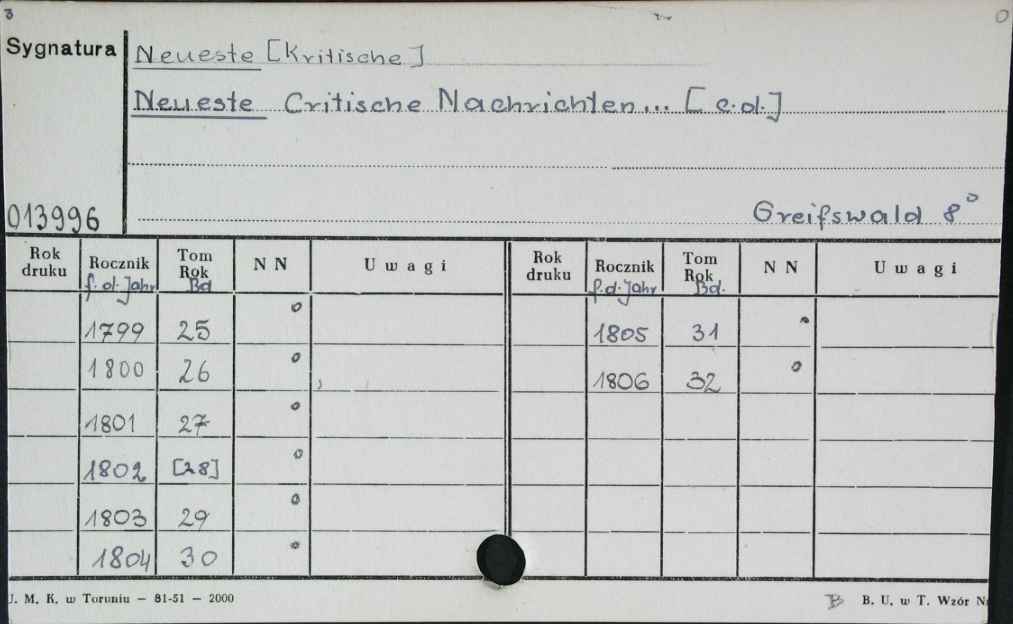 3
Sygnatura
Neueste [Kritische]
Neueste Critische Nachrichten... [c.d.]
013996
Greifswald 8°
Rok druku Rocznik f.d.Jahr Tom Rok Bd NN Uwagi Rok druku Rocznik f.d.Jahr Tom Rok Bd. NN Uwagi
1799 25 o 1805 31
1800 26 o 1806 32 o
1801 27 o
1802 [28] o
1803 29 o
1804 30 o
J. M. K. w Toruniu — 81-51 — 2000
B B. U. w T. Wzór N